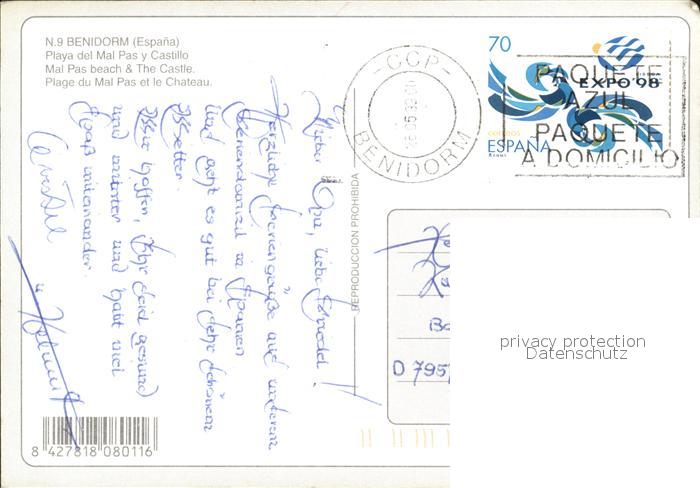 N.9 BENIDORM (España)
Playa del Mal Pas y Castillo
Mal Pas beach & The Castle.
Plage du Mal Pas et le Chateau.
CCP
BENIDORM
70
EXPO'98
CORREOS
ESPAÑA
PAQUETE
AZUL
PAQUETE
A DOMICILIO
REPRODUCCION PROHIBIDA
Lieber Opa, liebe
Herzliche Feriengrüße aus unserem
in Spanien
uns geht es gut bei sehr schönem
Wetter.
Wir hoffen, Ihr seid gesund
und munter und habt viel
Spaß miteinander.
Christel
u. Helmut
D 795
privacy protection
Datenschutz
8 427818 080116